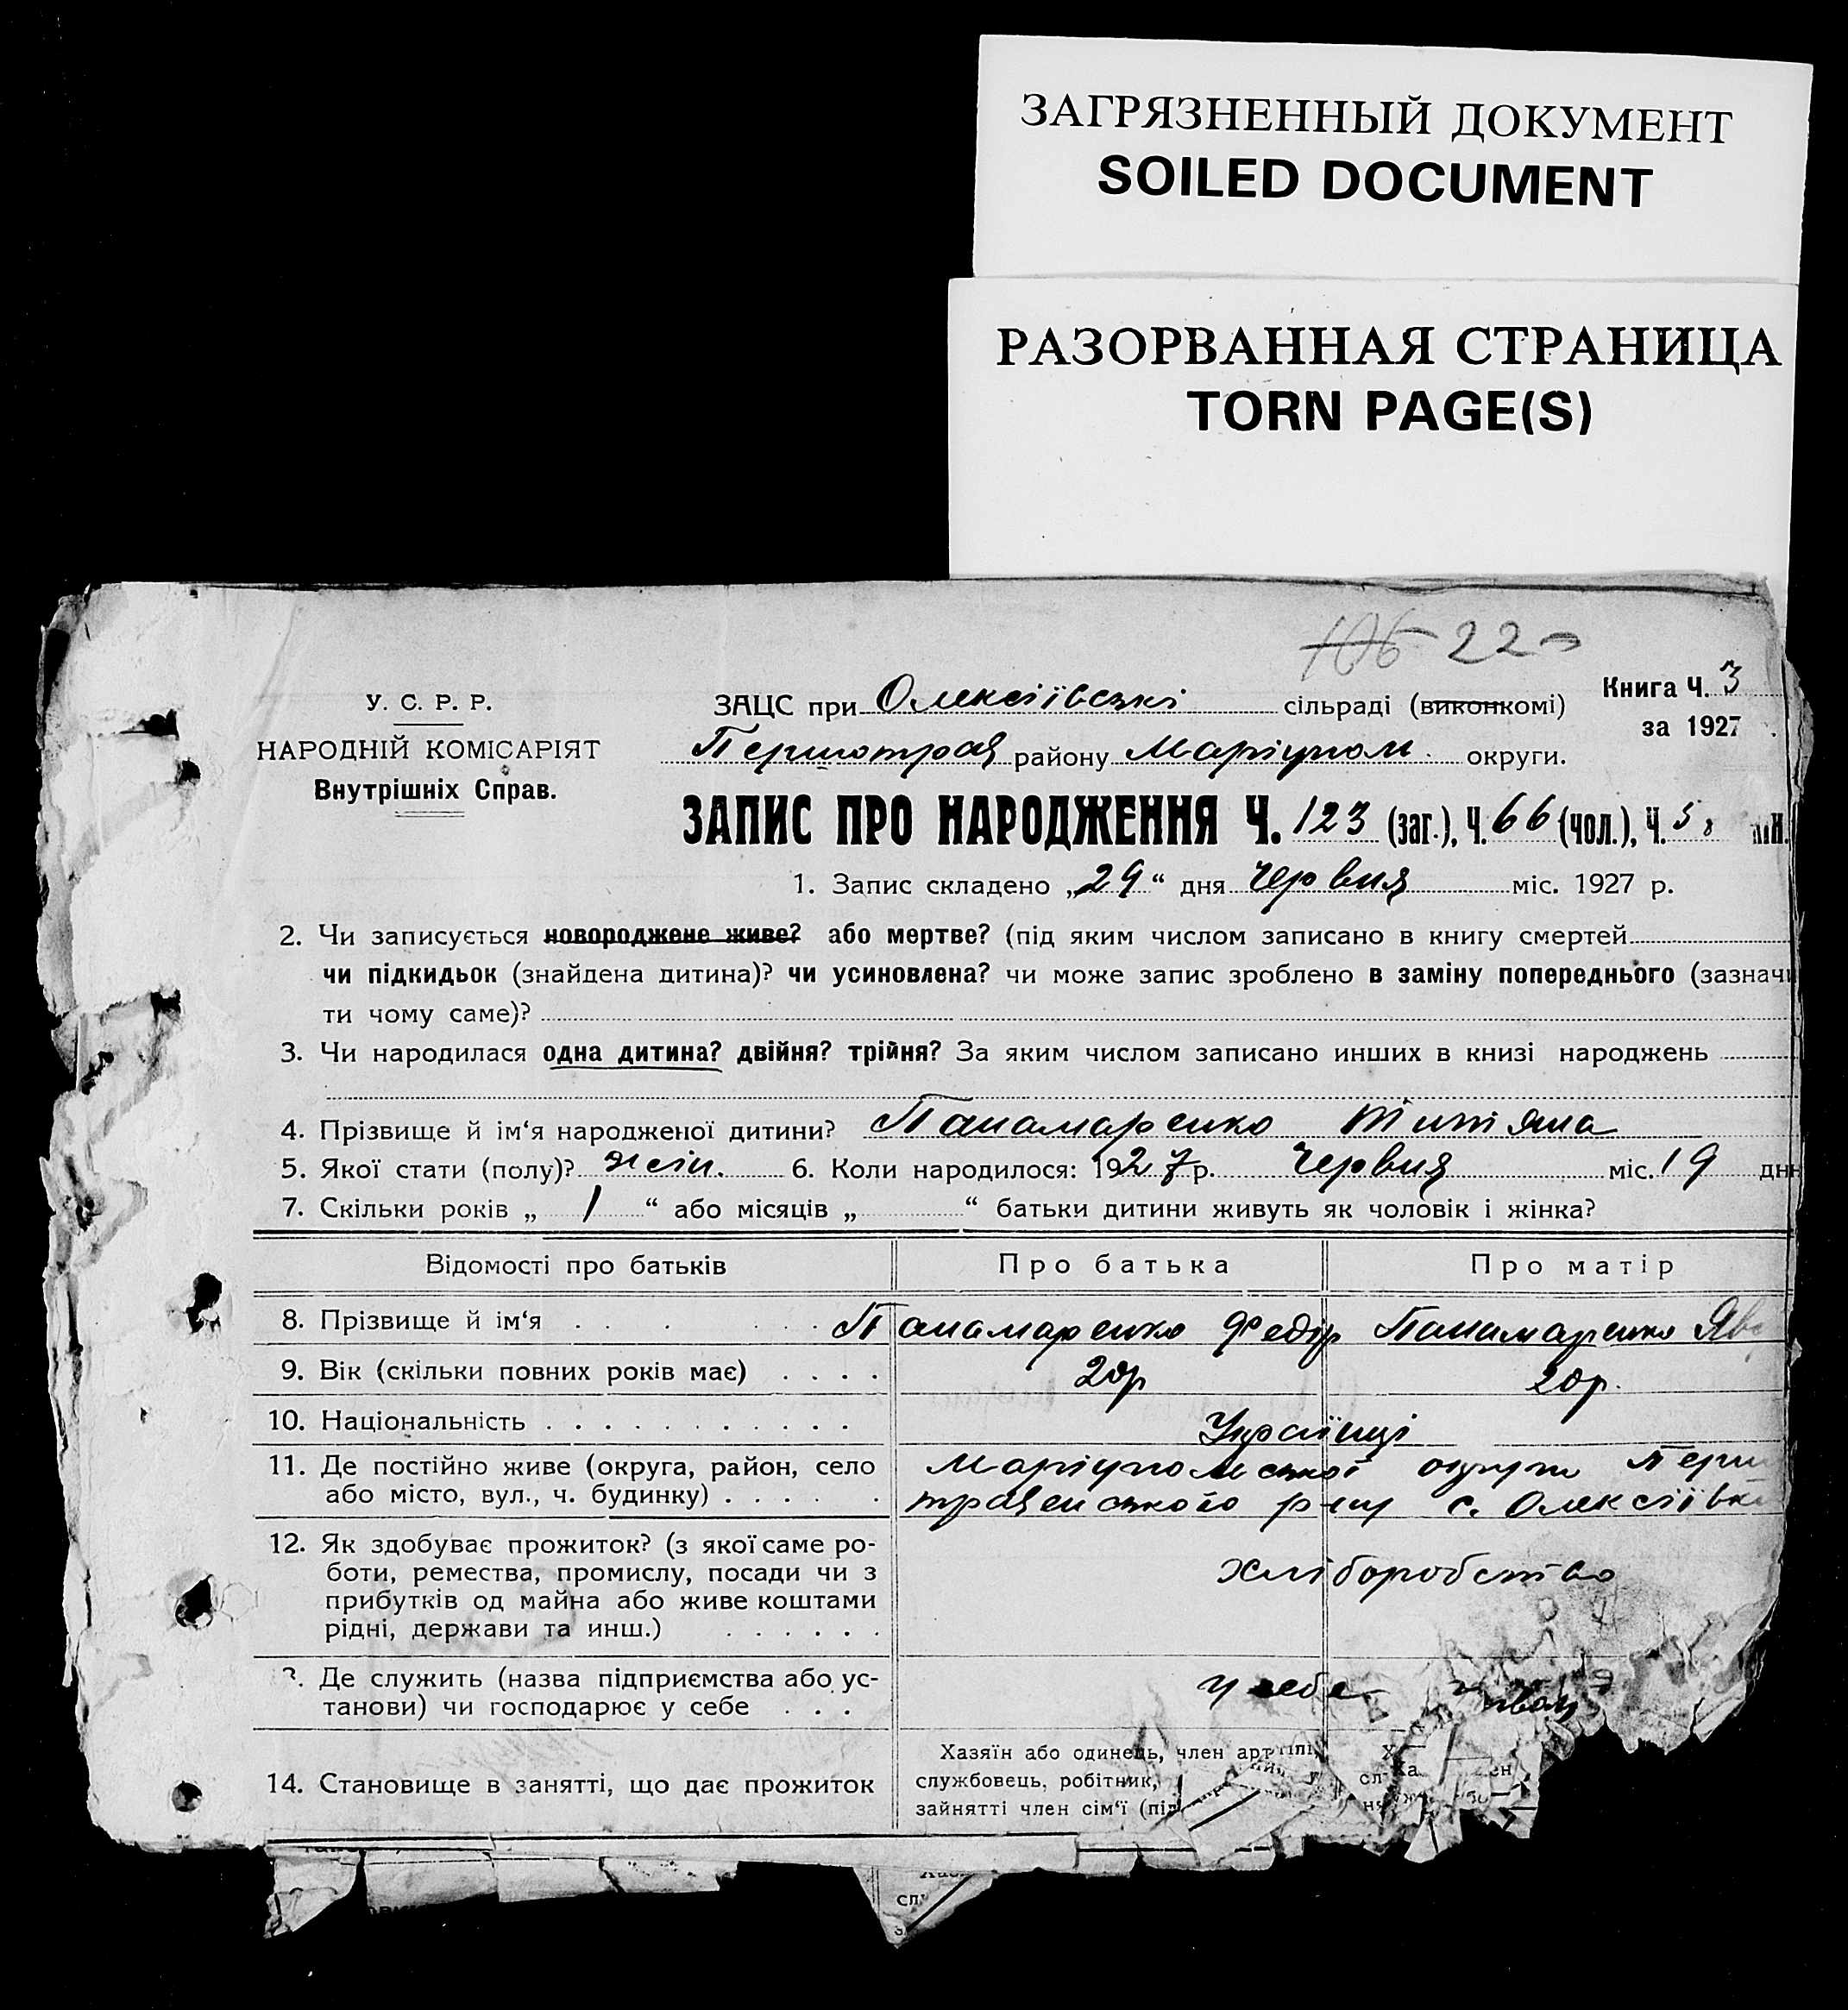 ЗАГРЯЗНЕННЫЙ ДОКУМЕНТ
SOILED DOCUMENT
РАЗОРВАННАЯ СТРАНИЦА
TORN PAGE(S)
106 22
У. С. Р. Р.
НАРОДНІЙ КОМІСАРІЯТ
Внутрішніх Справ.
ЗАЦС при Олексіївські сільраді (виконкомі)
Книга Ч. 3
за 1927
Першотрав району Маріупол. округи.
ЗАПИС ПРО НАРОДЖЕННЯ Ч. 123 (заг.), Ч. 66 (чол.), Ч. 5
1. Запис складено „29“ дня червня міс. 1927 р.
2. Чи записується новороджене живе? або мертве? (під яким числом записано в книгу смертей
чи підкидьок (знайдена дитина)? чи усиновлена? чи може запис зроблено в заміну попереднього (зазначи
ти чому саме)?
3. Чи народилася одна дитина? двійня? трійня? За яким числом записано инших в книзі народжень
4. Прізвище й ім‘я народженої дитини? Панамаренко Титяна
5. Якої стати (полу)? жін. 6. Коли народилося: 1927 р. червня міс. 19 дня
7. Скільки років „ 1 “ або місяців „ “ батьки дитини живуть як чоловік і жінка?
Відомості про батьків Про батька Про матір
8. Прізвище й ім‘я . . . . . . Панамаренко Федір Панамаренко Яв
9. Вік (скільки повних років має) . . . . 20р 20р.
10. Національність . . . . . . . . . . . Українці
11. Де постійно живе (округа, район, село
або місто, вул., ч. будинку) . . . . .
Маріупольської округи Перш
травенського р-ну с. Олексіївка
12. Як здобуває прожиток? (з якої саме ро-
боти, ремества, промислу, посади чи з
прибутків од майна або живе коштами
рідні, держави та инш.) . . . . . .
Хліборобство
3. Де служить (назва підприємства або ус-
танови) чи господарює у себе . . .
у себе
14. Становище в занятті, що дає прожиток
Хазяїн або одинець, член арт
службовець, робітник,
зайнятті член сім‘ї (під